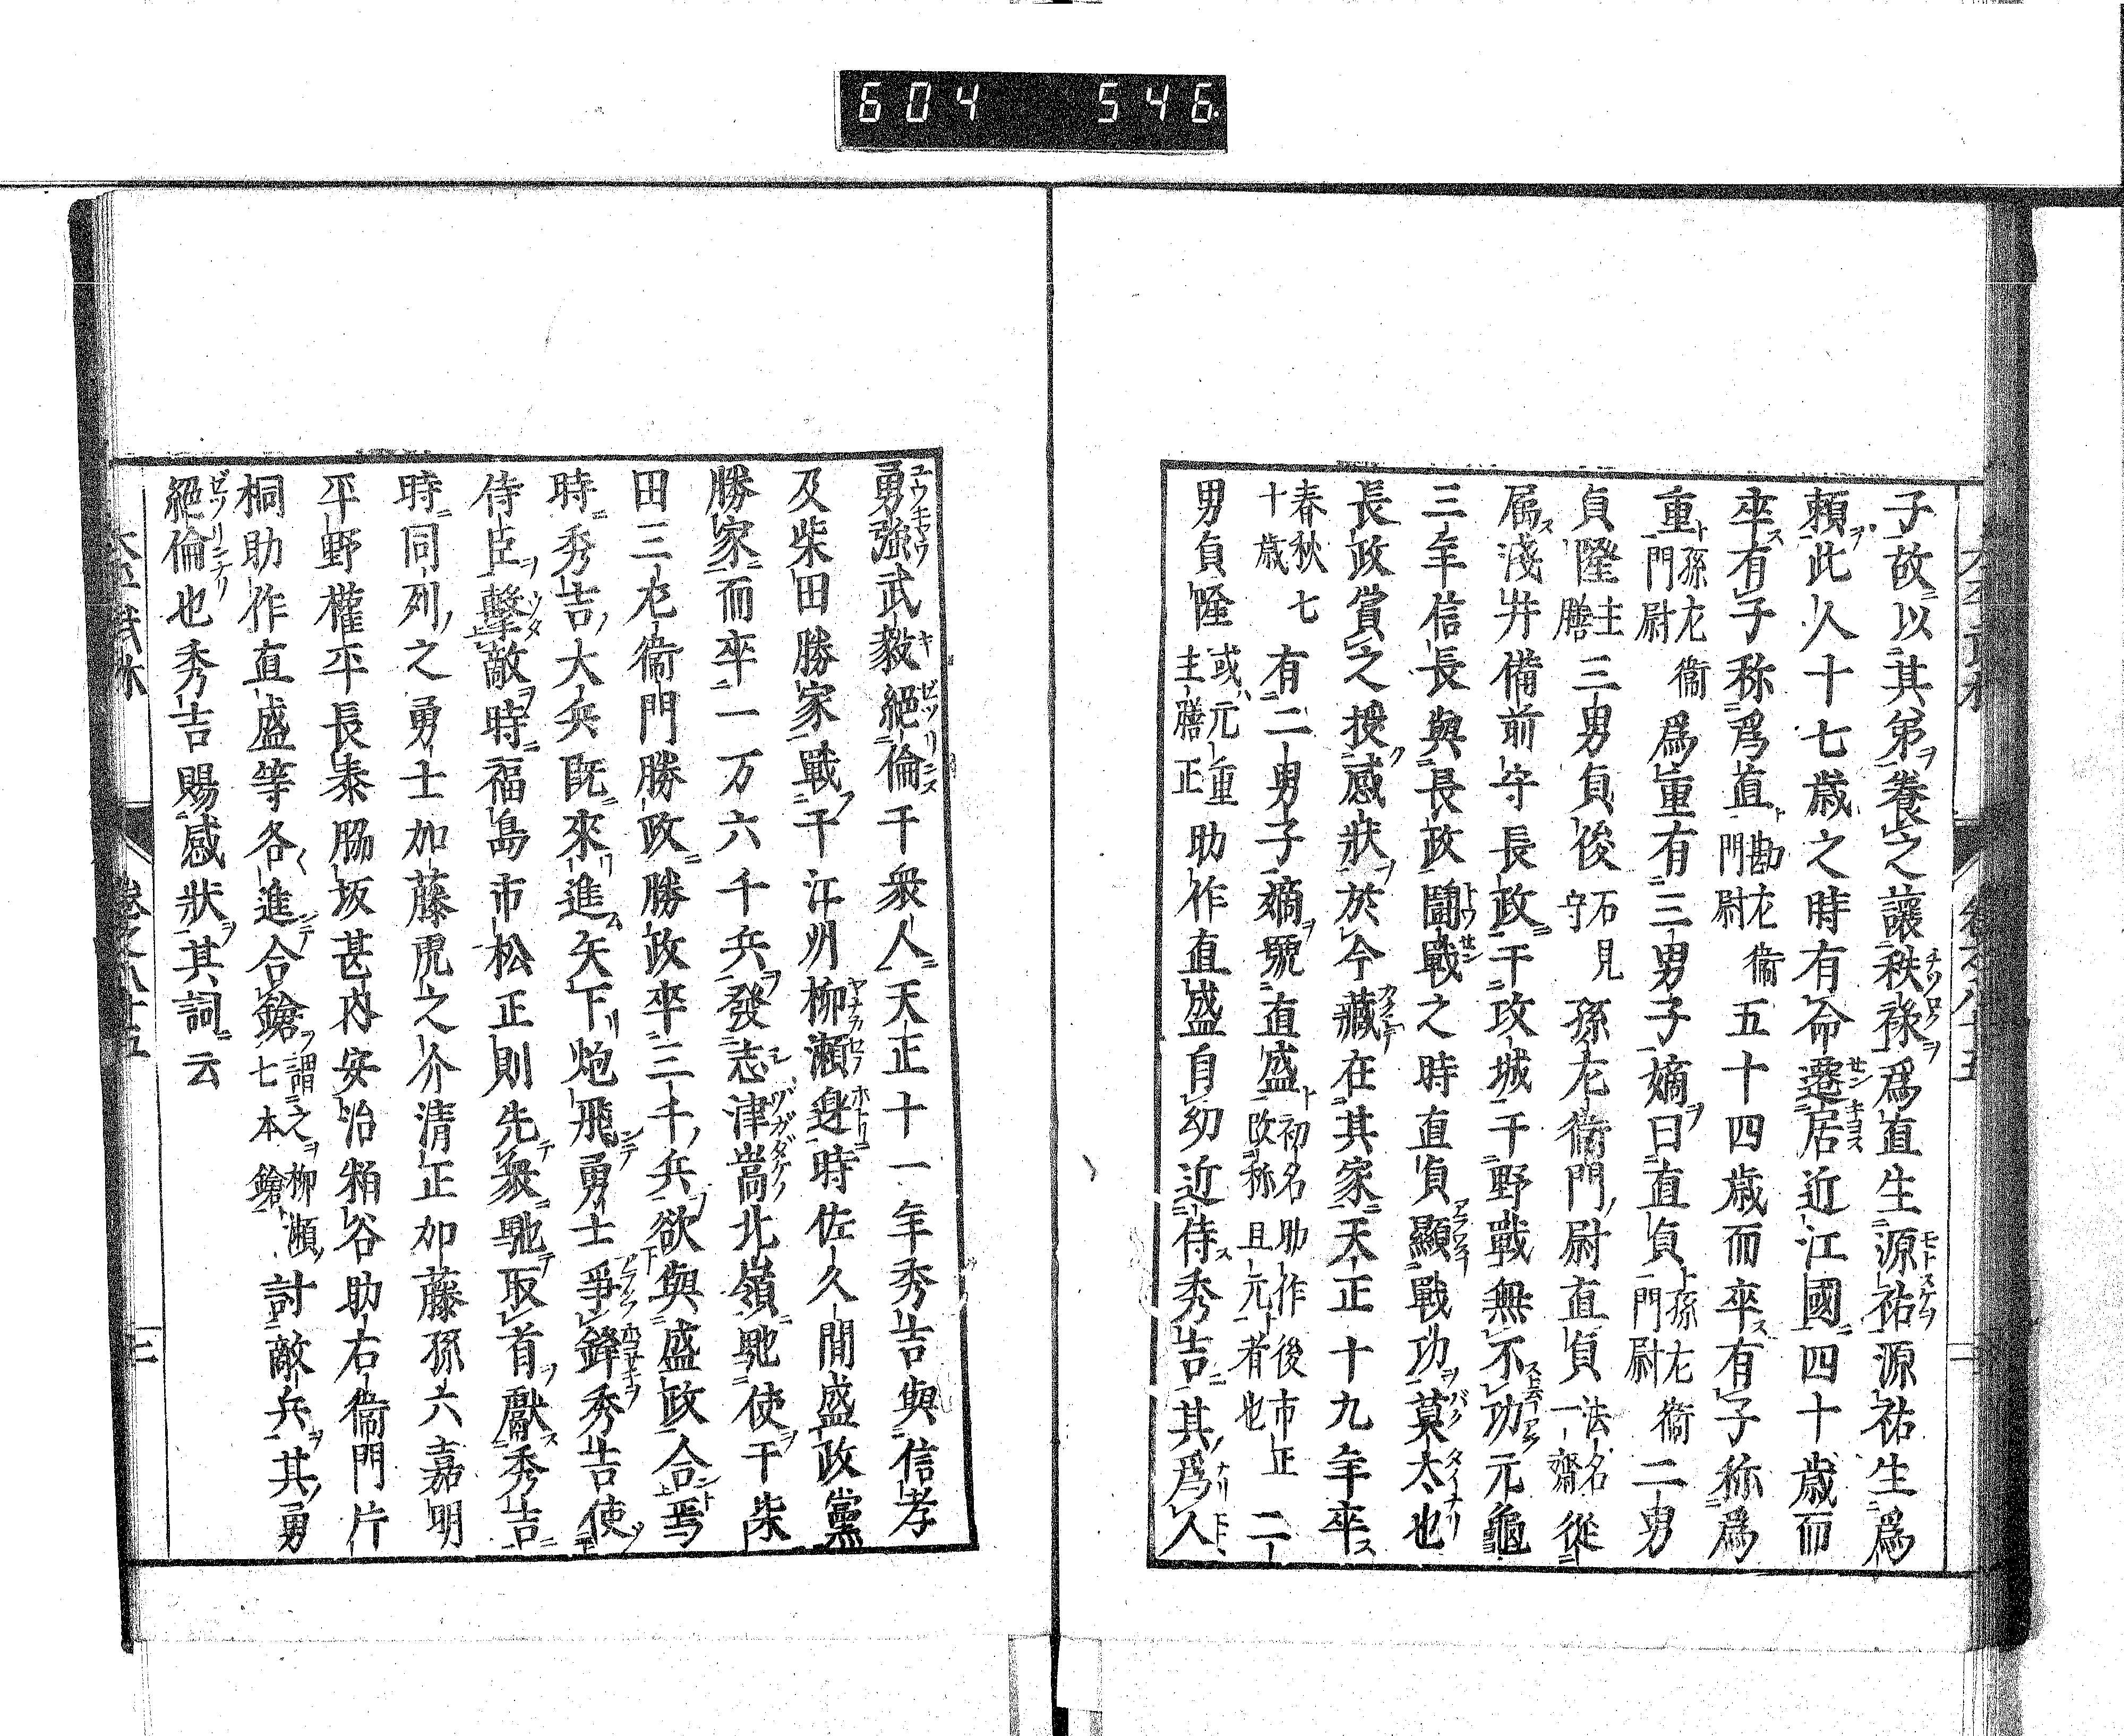 604 546
子故以其弟養之讓秩祿爲直生源祐源祐生爲
頼此人十七歳之時有命遷居近江國四十歳而
卒有子称爲直勘左衞門尉五十四歳而卒有子称爲
重孫左衞門尉爲重有三男子嫡曰直貞孫左衞門尉二男
貞隆主膳三男貞俊石見守孫左衞門尉直貞法名一齋從
属淺井備前守長政于攻城于野戰無不功元龜
三年信長與長政鬪戰之時直貞顯戰功莫太也
長政賞之授感狀於今藏在其家天正十九年卒
春秋七十歳有二男子嫡號直盛初名助作後市正改称且元者也二
男貞隆或元重主膳正助作直盛自幼近侍秀吉其爲人
勇強武毅絕倫千衆人天正十一年秀吉與信孝
及柴田勝家戰于江州柳瀬邊時佐久間盛政黨
勝家而卒一万六千兵發志津嵩北嶺馳使于柴
田三左衞門勝政勝政卒三千兵欲與盛政合焉
時秀吉大兵既來進矢下炮飛勇士爭鋒秀吉使
侍臣擊敵時福島市松正則先衆馳取首獻秀吉
時同列之勇士加藤虎之介清正加藤孫六嘉明
平野權平長泰脇坂甚内安治粕谷助右衞門片
桐助作直盛等各進合鎗謂之柳瀬七本鎗討敵兵其勇
絕倫也秀吉賜感狀其詞云
卷之八十五
二